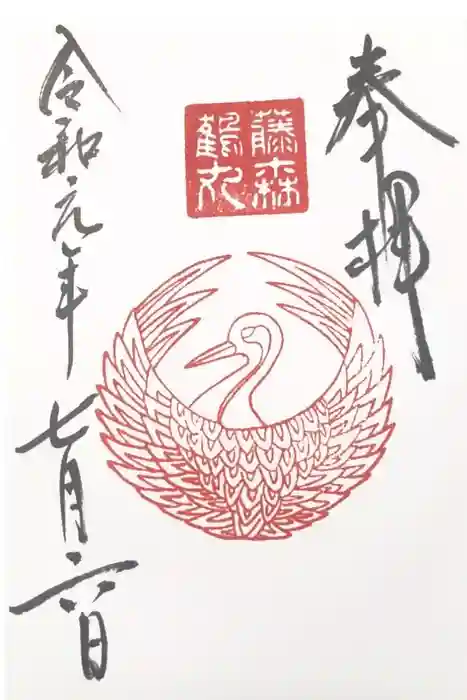 奉拝
藤森
鶴丸
令和元年七月六日